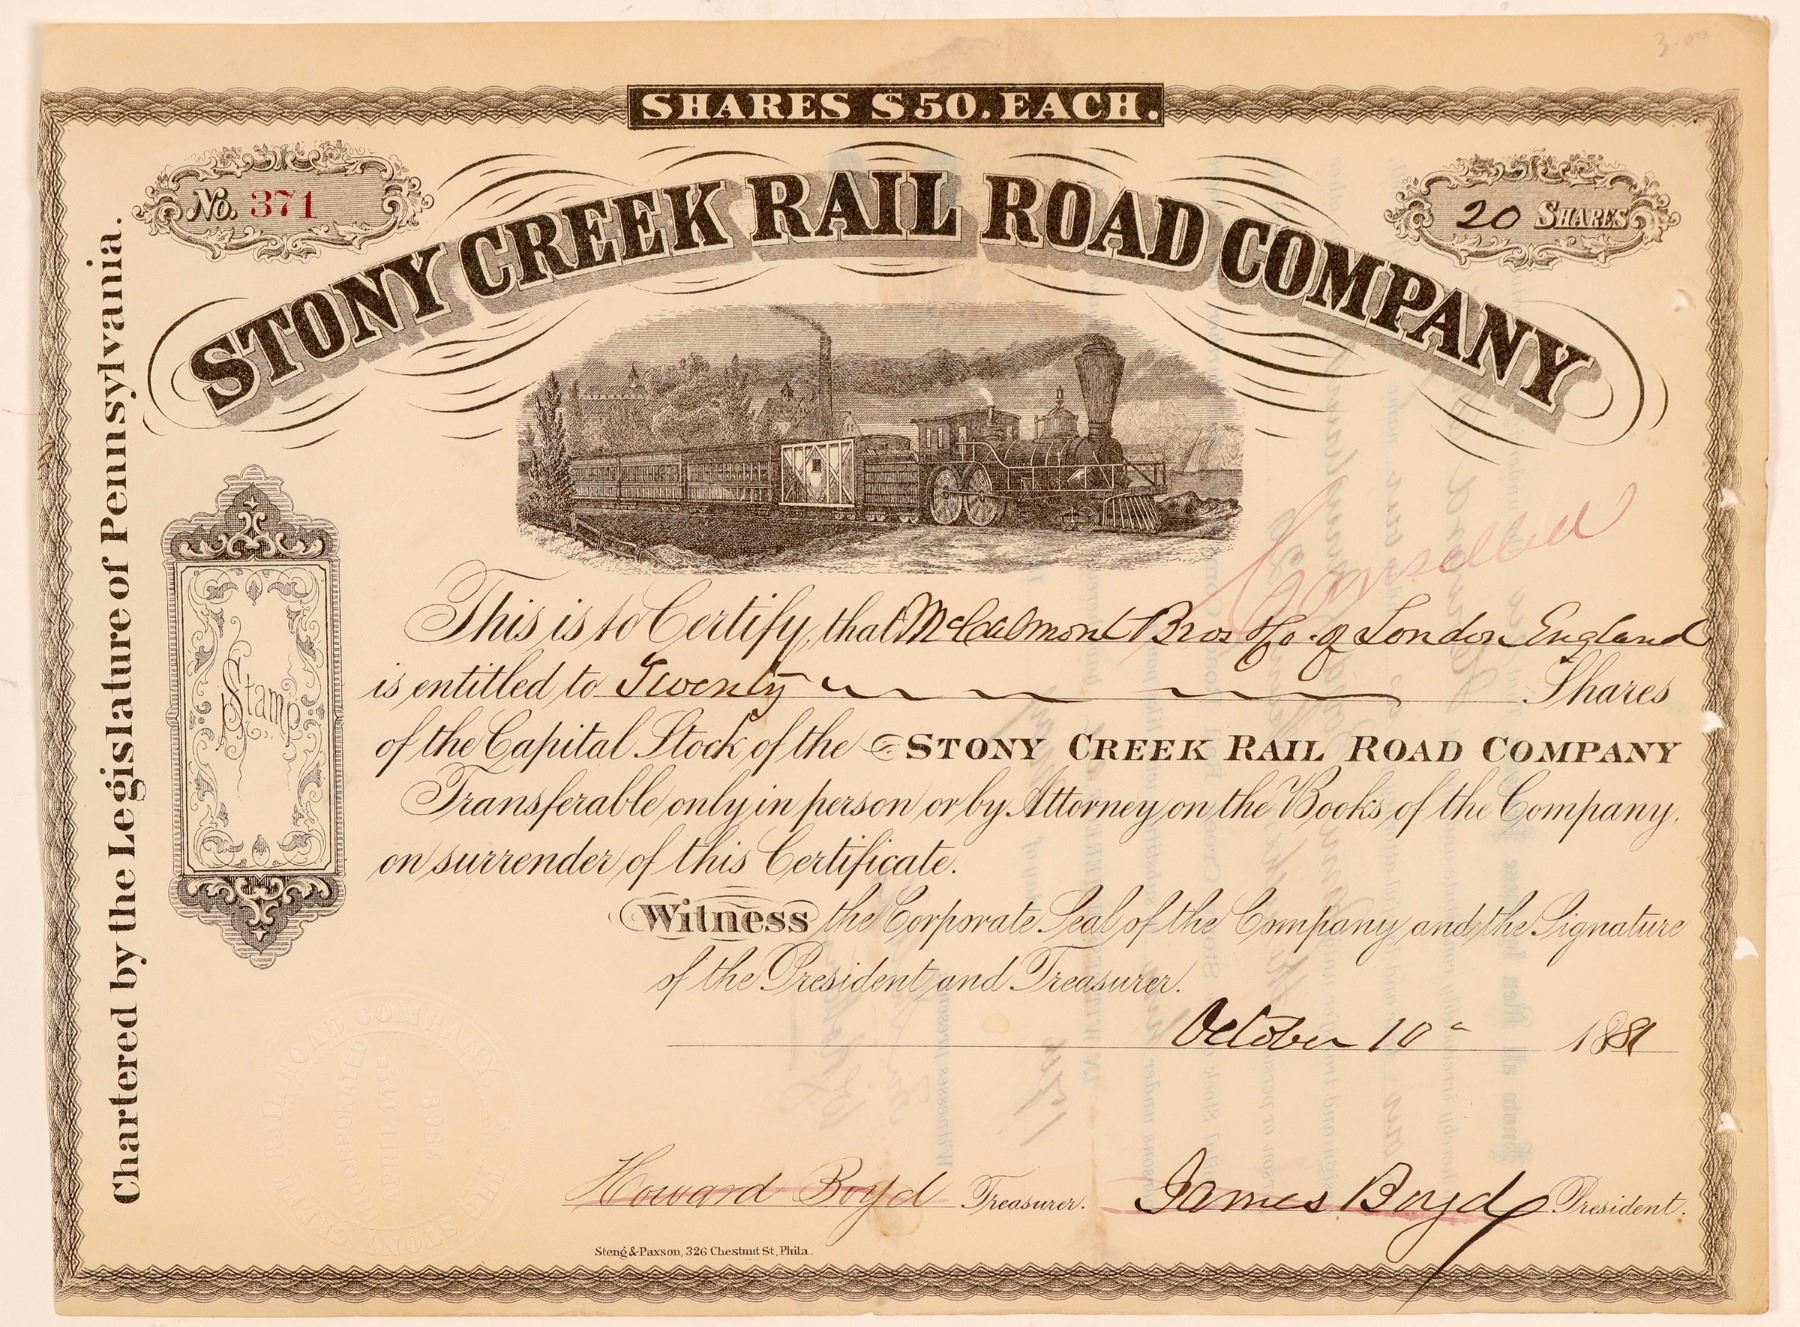 3.00
SHARES $50. EACH.
No. 371
20 SHARES
STONY CREEK RAIL ROAD COMPANY
Chartered by the Legislature of Pennsylvania.
Cancelled
Stamp
This is to Certify, that McCalmont Bros & Co. of London England
is entitled to Twenty Shares
of the Capital Stock of the STONY CREEK RAIL ROAD COMPANY
Transferable only in person or by Attorney on the Books of the Company,
on surrender of this Certificate.
Witness the Corporate Seal of the Company and the Signature
of the President and Treasurer.
October 10 1881
THE STONY CREEK RAIL ROAD COMPANY
INCORPORATED APRIL 1868
Howard Boyd Treasurer. James Boyd President.
Steng & Paxson, 326 Chestnut St, Phila.